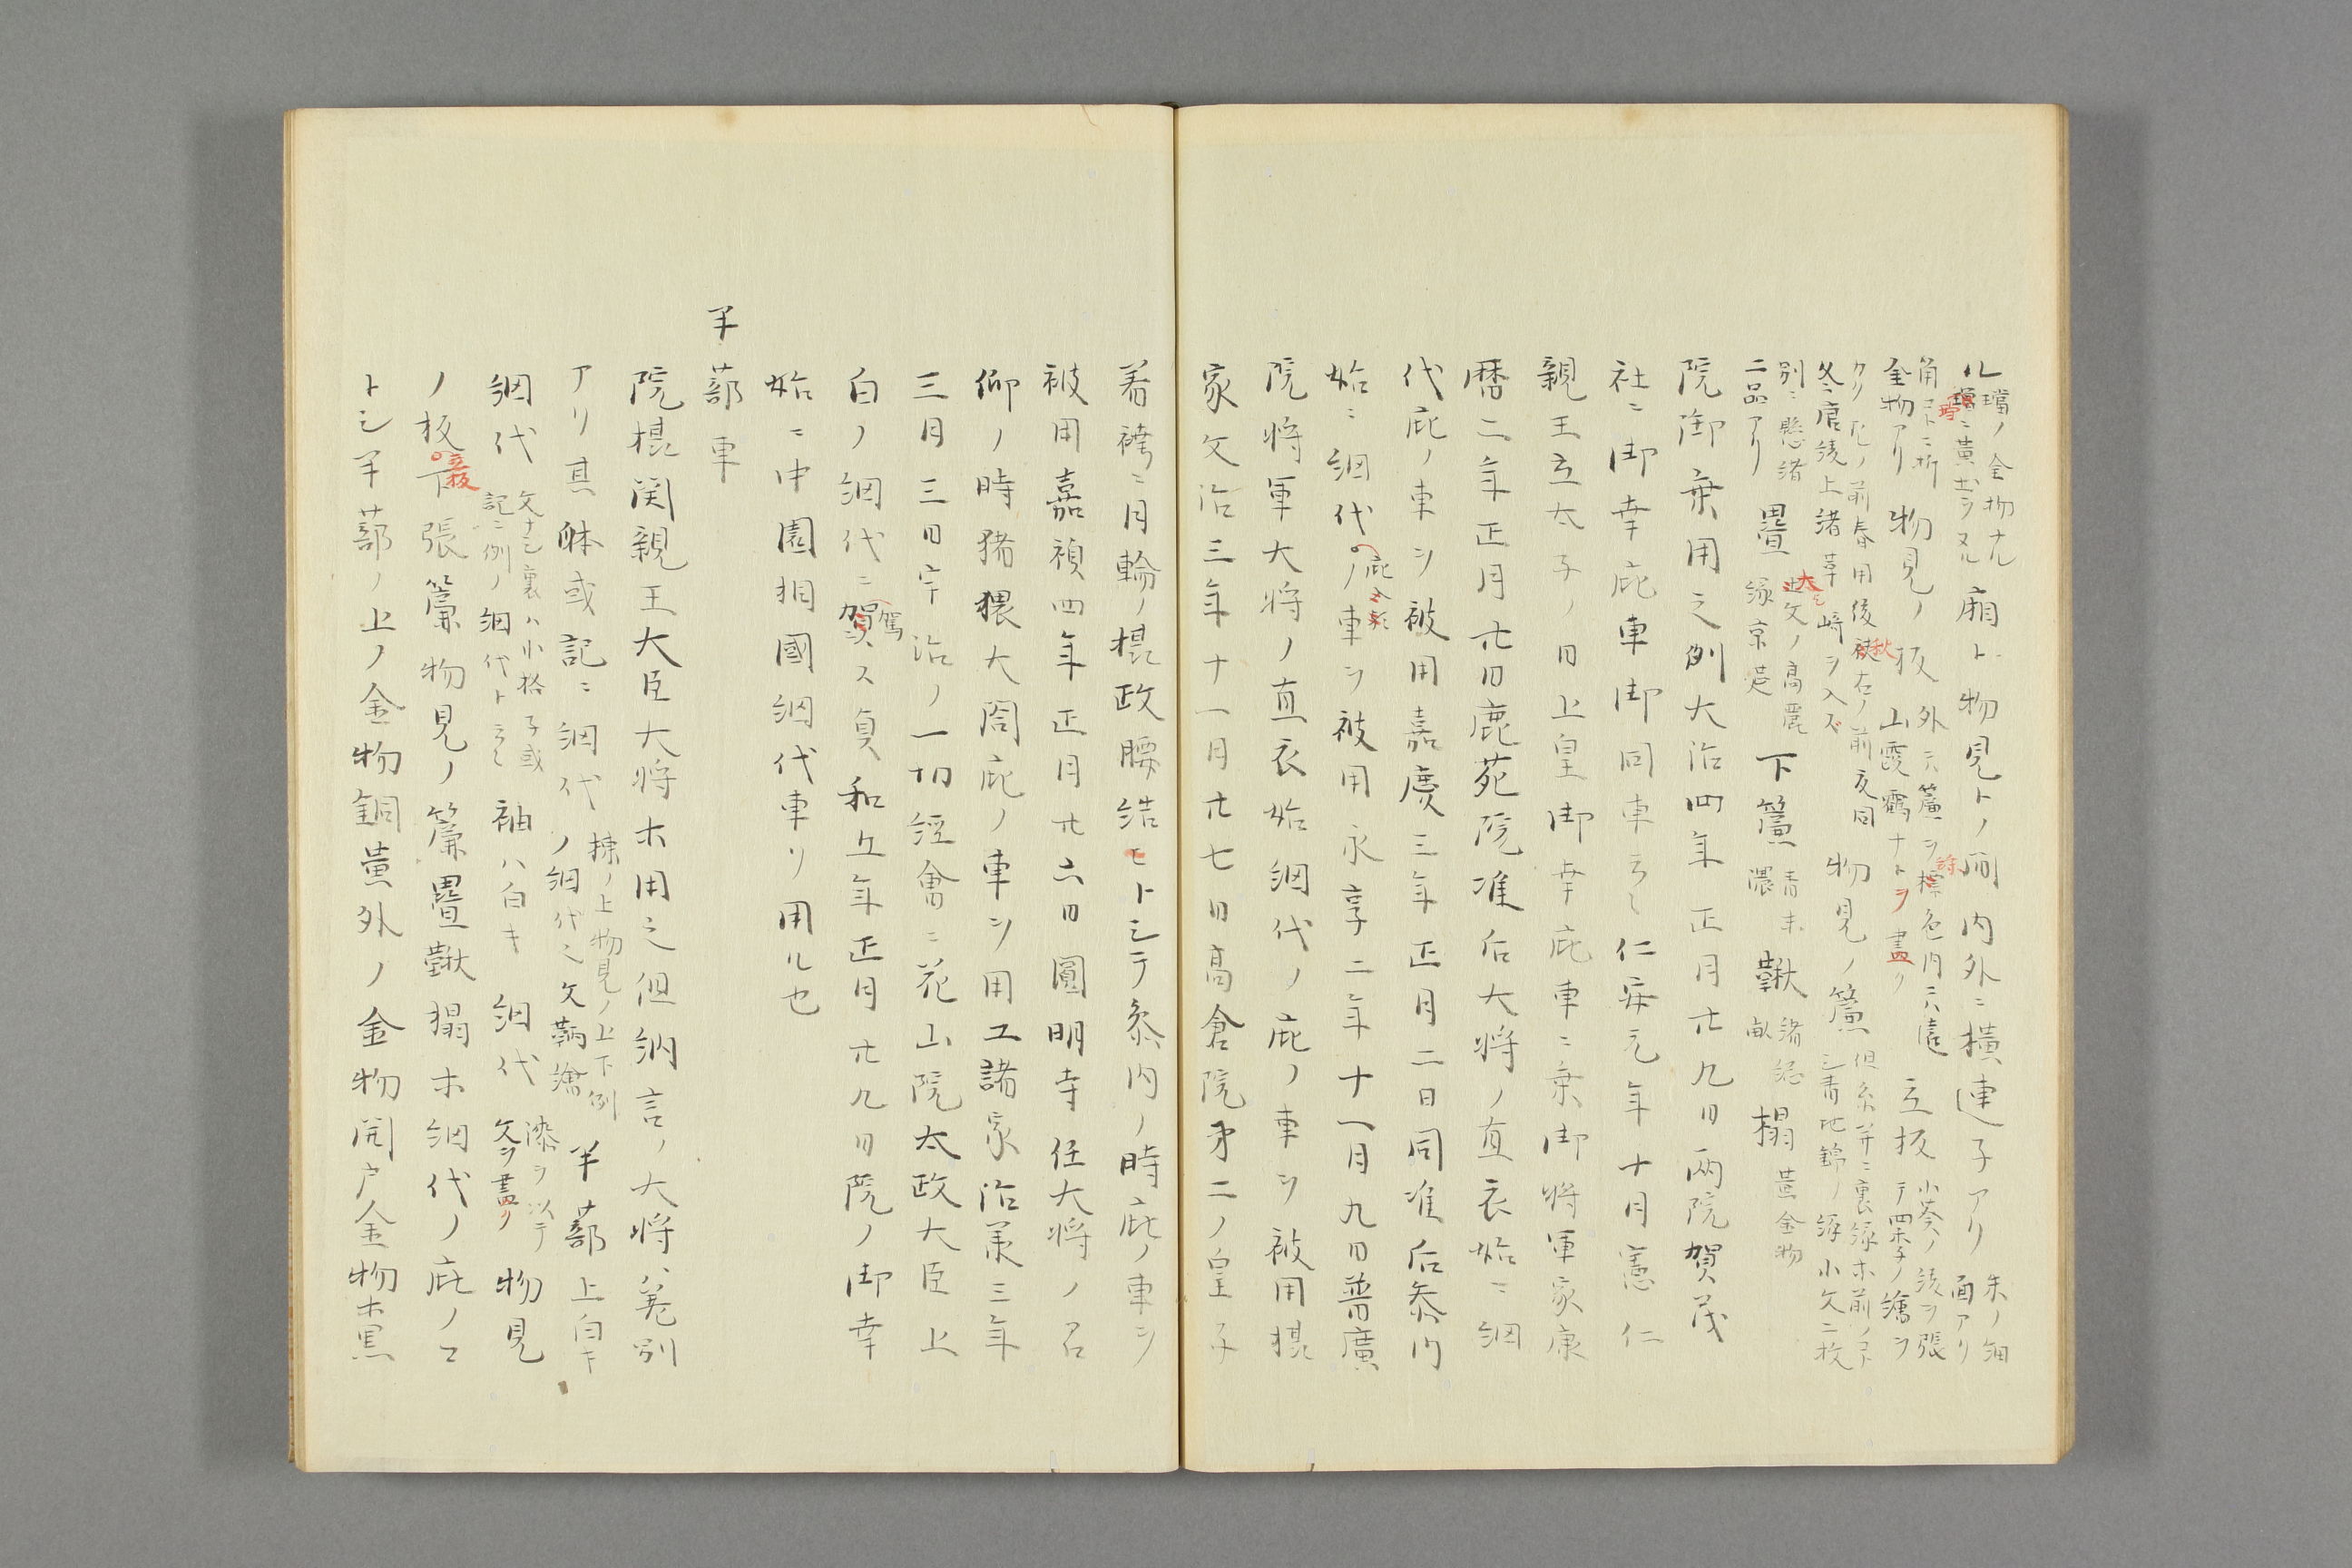 ル 璫ノ金物ナル 璫ニ黄土ヲヌル 廂ト物見トノ間内外ニ横連子アリ 朱ノ細面アリ
角コトニ折金物アリ 物見ノ板 外ニハ簾ヲ 色内ニハ遠山霞鶴ナトヲ畫ク 立板 小葵ノ綾ヲ張テ四季子ノ繪ヲ
カク 尻ノ前春用後 右ノ前夏同冬 唐綾上緒革﨑ヲ入ズ 物見ノ簾 但糸并ニ裏縁ホ前ノコトシ青地錦ノ縁小文二枚
別ニ懸緒二品アリ 疊 大文ノ高麗縁京莚 下簾 青末濃 鞦 緒總 榻 黄金物
院御乗用之例大治四年正月廿九日両院賀茂
社ニ御幸庇車御同車云々仁安元年十月憲仁
親王立太子ノ日上皇御幸庇車ニ乗御将軍家康
暦二年正月廿日鹿苑院准后大将ノ直衣始ニ網
代庇ノ車ヲ被用嘉慶三年正月二日同准后参内
始ニ網代ノ車ヲ被用永享二年十一月九日普廣
院将軍大将ノ直衣始網代ノ庇ノ車ヲ被用摂
家文治三年十一月廿七日高倉院才二ノ皇子
着袴ニ月輪ノ摂政腰結モトシテ参内ノ時庇ノ車ヲ
被用嘉禎四年正月廿六日圓明寺任大将ノ召
仰ノ時猪隈大閤庇ノ車ヲ用工諸家治承三年
三月三日宇治ノ一切経會ニ花山院太政大臣上
白ノ網代ニ賀ス貞和五年正月廿九日院ノ御幸
始ニ中園相國網代車リ用ル也
半蔀車
院摂関親王大臣大将ホ用之但納言ノ大将ハ差別
アリ其躰或記ニ網代 棟ノ上物見ノ上下例ノ網代之文鞆繪 半蔀 上白キ
網代 文ナシ裏ハ小格子或記ニ例ノ網代ト云々 袖ハ白キ網代 漆ヲ以テ文ヲ畫ク 物見
ノ板下張簾物見ノ簾疊鞦榻ホ網代ノ庇ノコ
トシ半蔀ノ上ノ金物銅黄外ノ金物開戸金物ホ黒